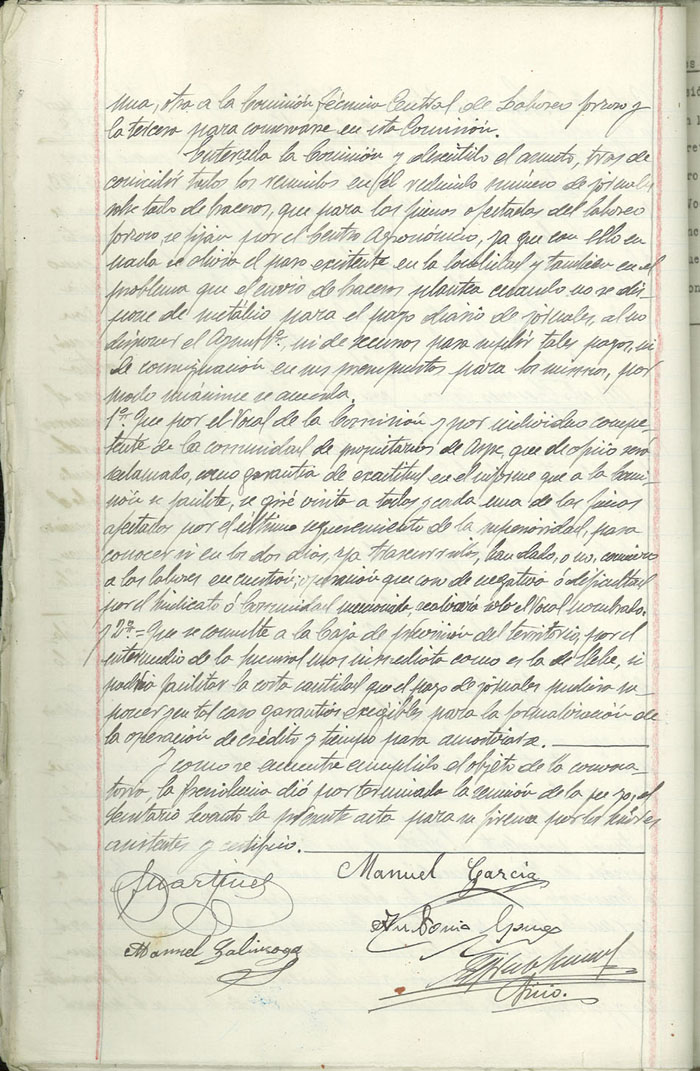 nua, otra a la Comisión Técnica Central de Laboreo forzoso y
la tercera para conservarse en esta Comisión.
Enterada la Comisión y discutido el asunto, tras de
coincidir todos los reunidos en el reducido número de jornales
sobre todo de braceros, que para las fincas afectadas del laboreo
forzoso, se fijan por el Centro Agronómico, ya que con ello en
nada se alivia el paro existente en la localidad y también en el
problema que el envio de braceros plantea cuando no se dis-
pone de metálico para el pago diario de jornales, al no
disponer el Ayunt.º, ni de recursos para suplir tales pagos, ni
de consignación en sus presupuestos para los mismos, por
modo unánime se acuerda.
1º.- Que por el Vocal de la Comisión y por individuo compe-
tente de la comunidad de propietarios de Aspe, que de oficio será
reclamado, como garantia de exactitud en el informe que a la Comi-
sión se facilite, se giré visita a todas y cada una de las fincas
afectadas por el último requerimiento de la superioridad, para
conocer si en los dos dias, ya trascurridos, han dado, o no, comienzo
a las labores en cuestión; operación que caso de negativa ó dificultad
por el Sindicato ó Comunidad mencionada, realizará solo el Vocal nombrado.
y 2º.= Que se consulte a la Caja de previsión del territorio, por el
intermedio de la sucursal mas inmediata como es la de Elche, si
podria facilitar la corta cantidad que el pago de jornales pudiera su-
poner y en tal caso garantias exigibles para la formalización de
la operación de crédito y tiempo para amortizarse.
Y como se encuentre cumplido el objeto de la convoca-
toria, la Presidencia dió por terminada la reunión de la que yo, el
Secretario levanto la presente acta para su firma por los señores
asistentes y certifico.
J Martinez
Manuel García
Antonio
Manuel Galinsoga
Srio.